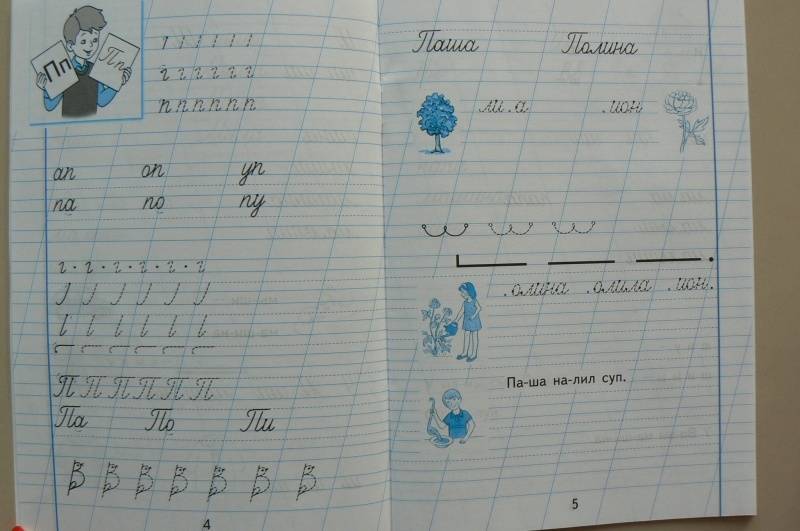 Пп Пп
п п п п п п
ап оп уп
па по пу
П П П П П П
Па По Пи
4
Паша Полина
ли.а .ион
.олина .олила .ион.
Па-ша на-лил суп.
5